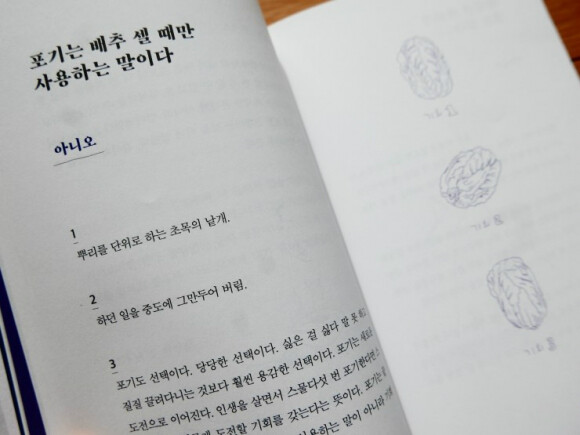 포기는 배추 셀 때만
사용하는 말이다
아니오
1
뿌리를 단위로 하는 초목의 낱개.
2
하던 일을 중도에 그만두어 버림.
3
포기도 선택이다. 당당한 선택이다. 싫은 걸 싫다 말 못 하고
질질 끌려다니는 것보다 훨씬 용감한 선택이다. 포기는 새로운
도전으로 이어진다. 인생을 살면서 스물다섯 번 포기한다면
도전할 기회를 갖는다는 뜻이다. 포기는
사용하는 말이 아니라